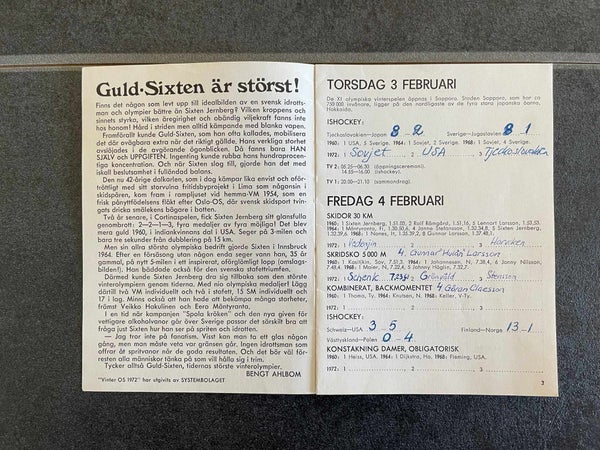 Guld-Sixten är störst!
Finns det någon som levt upp till idealbilden av en svensk idrotts-
man och olympier bättre än Sixten Jernberg? Vilken kroppens och
sinnets styrka, vilken äregirighet och obändig viljekraft fanns inte
hos honom! Hård i striden men alltid kämpande med blanka vapen.
Framförallt kunde Guld-Sixten, som han ofta kallades, mobilisera
det där avgörande extra när det riktigt gällde. Hans verkliga storhet
avslöjades i de avgörande ögonblicken. Då fanns bara HAN
SJÄLV och UPPGIFTEN. Ingenting kunde rubba hans hundraprocen-
tiga koncentration. Och när Sixten slog till, gjorde han det med
iskall beslutsamhet i fulländad balans.
Den nu 42-årige dalkarlen, som i dag kämpar lika envist och oför-
tröttligt med storvulna fritidsbyprojekt i Lima som någonsin i
skidspåren, kom fram i rampljuset vid hemma-VM 1954, som en
frisk pånyttfödelsens fläkt efter Oslo-OS, där svensk skidsport tving-
ats dricka smälekens bägare i botten.
Två år senare, i Cortinaspelen, fick Sixten Jernberg sitt glansfulla
genombrott: 2—2—1—3, fyra medaljer av fyra möjliga! Det blev
mera guld 1960, i indianskvinnans dal i USA. Seger på 3-milen och
bara tre sekunder från dubblering på 15 km.
Men sin allra största olympiska bedrift gjorde Sixten i Innsbruck
1964. Efter en försäsong utan någon enda seger vann han, 35 år
gammal, på nytt 5-milen i ett inspirerat, oförglömligt lopp (omslags-
bilden!). Han bäddade också för den svenska stafettriumfen.
Därmed kunde Sixten Jernberg dra sig tillbaka som den största
vinterolympiern genom tiderna. Med nio olympiska medaljer! Lägg
därtill två VM individuellt och två i stafett, 15 SM individuellt och
17 i lag. Minns också att han hade att bekämpa många storheter,
främst Veikko Hakulinen och Eero Mäntyranta.
I en tid när kampanjen "Spola kröken" och den nya given för
vettigare alkoholvanor går över Sverige passar det särskilt bra att
fråga just Sixten hur han ser på spriten och idrotten.
— Jag tror inte på fanatism. Visst kan man ta ett glas någon
gång, men man måste veta var gränsen går. Ingen idrottsman som
offrar åt spritvanor når de goda resultaten. Och det bör väl för-
resten alla människor tänka på som vill hålla sig i trim.
Tycker alltså Guld-Sixten, tidernas störste vinterolympier.
BENGT AHLBOM
"Vinter OS 1972" har utgivits av SYSTEMBOLAGET
TORSDAG 3 FEBRUARI
De XI olympiska vinterspelen öppnas i Sapporo. Staden Sapporo, som har ca
750 000 invånare, ligger på den nordligaste av de fyra stora japanska öarna,
Hokkaido.
ISHOCKEY:
Tjeckoslovakien—Japan 8 2 Sverige—Jugoslavien 8 1
1960: 1 USA, 5 Sverige. 1964: 1 Sovjet, 2 Sverige. 1968: 1 Sovjet, 4 Sverige.
1972: 1 Sovjet 2 USA 3 Tjeckoslovakien
TV 2: 06.25—06.30 (öppningsceremoni).
14.55—16.35 (ishockey).
TV 1: 22.00—21.10 (sammandrag).
FREDAG 4 FEBRUARI
SKIDOR 30 KM
1972: 1 2 3 Harviken
SKRIDSKO 5 000 M 4. Gunnar Larsson
1972: 1 Schenk 7.23,6 2 Grönvold 3 Stensen
KOMBINERAT, BACKMOMENTET 4 Göran Claesson
1960: 1 Thoma, Ty. 1964: Knutsen, N. 1968: Keller, V-Ty.
1972: 1 2 3
ISHOCKEY:
Schweiz—USA 3-5 Finland—Norge 13-1
Västtyskland—Polen 0-4
KONSTÅKNING DAMER, OBLIGATORISK
1960: 1 Heiss, USA. 1964: 1 Dijkstra, Ho. 1968: Fleming, USA.
1972: 1 2 3
3